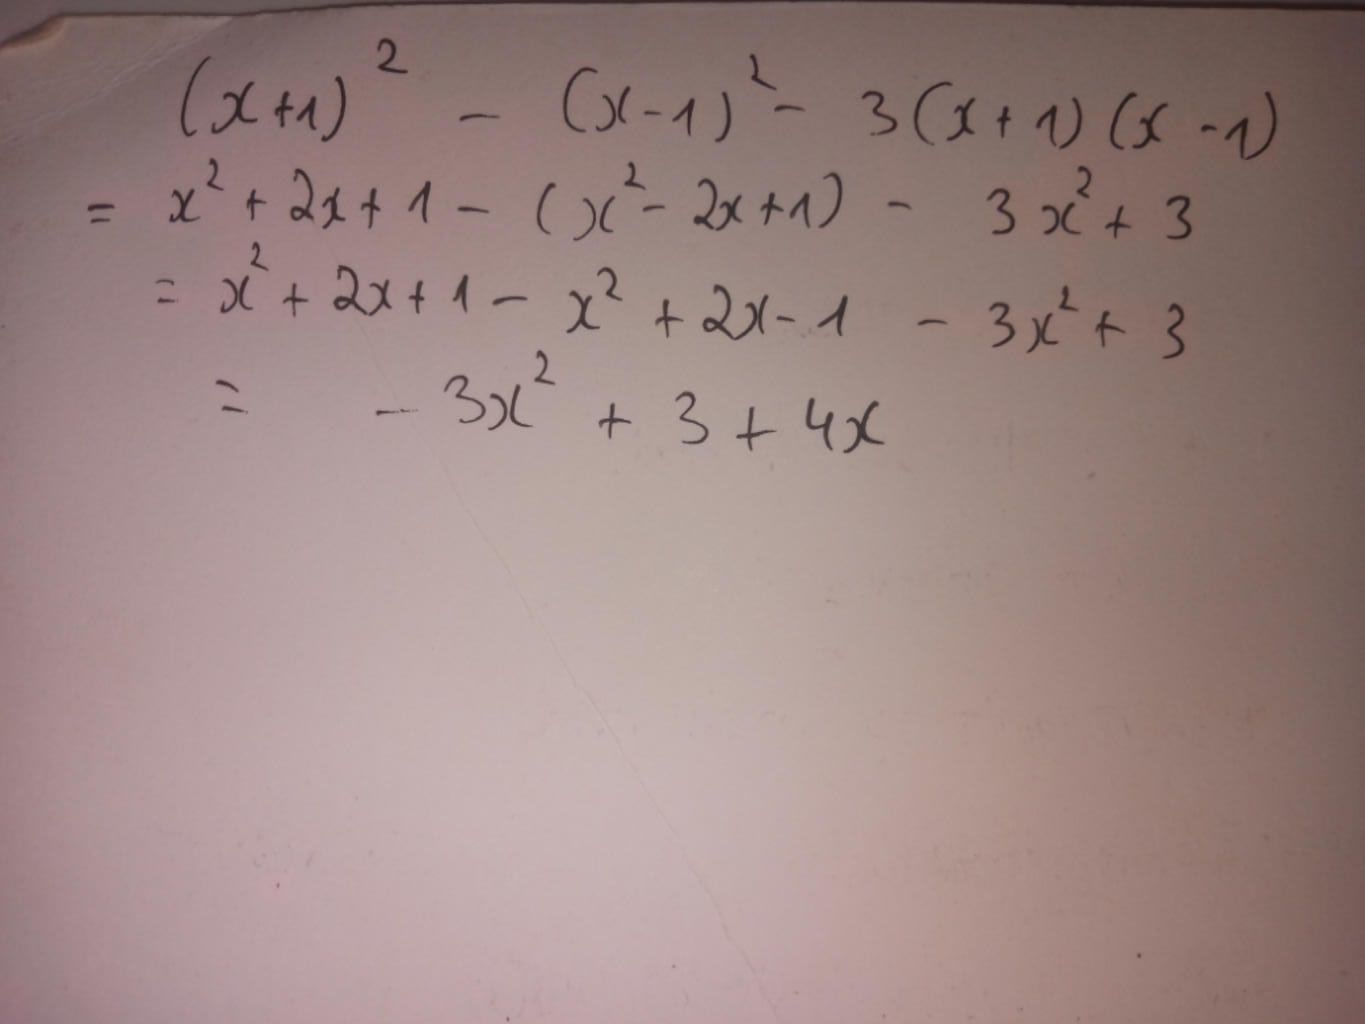 (x+1)² - (x-1)² - 3(x+1)(x-1)
= x² + 2x + 1 - (x² - 2x + 1) - 3x² + 3
= x² + 2x + 1 - x² + 2x - 1 - 3x² + 3
= - 3x² + 3 + 4x